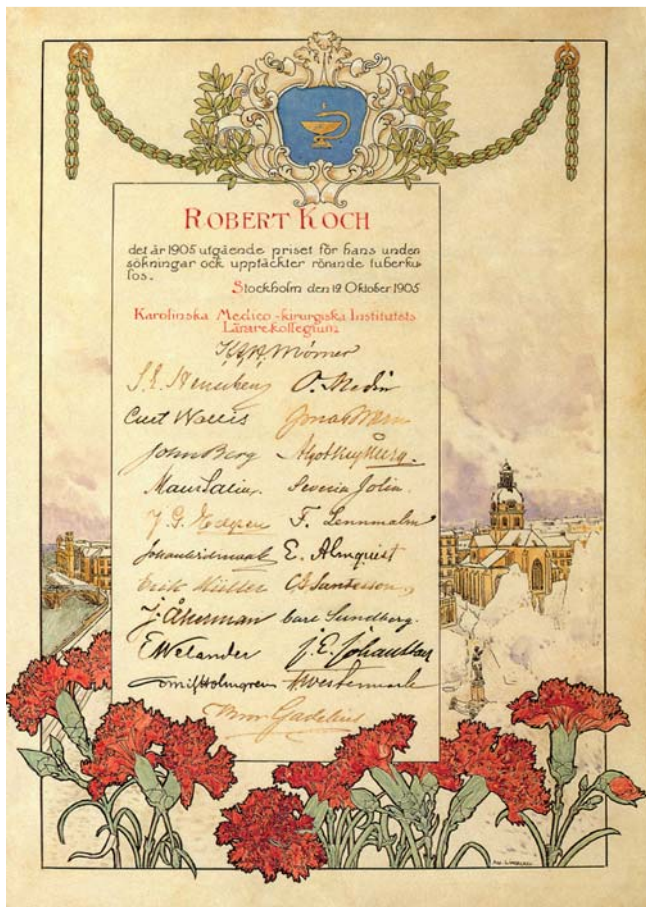 ROBERT KOCH
det år 1905 utgående priset för hans under
sökningar ock upptäckter rörande tuberku-
los.
Stockholm den 12 Oktober 1905
Karolinska Medico-kirurgiska Institutets
Lärarekollegium
Mörner
S. E. Henschen O. Medin
Curt Wallis Jonas
John Berg Algot Key-Åberg.
Severin Jolin.
F. Lennmalm
E. Almquist
Erik Müller C. G. Santesson
J. Åkerman Carl Sundberg.
E Welander J. E. Johansson
Emil Holmgren Westermark
Gadelius